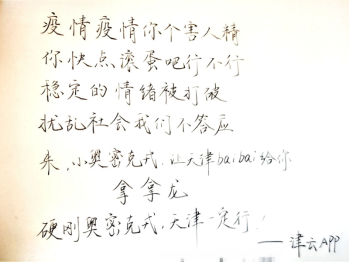 疫情疫情你个害人精
你快点滚蛋吧行不行
稳定的情绪被打破
扰乱社会我们不答应
来,小奥密克戎,让天津baibai给你
拿拿龙
硬刚奥密克戎,天津一定行!
——津云APP